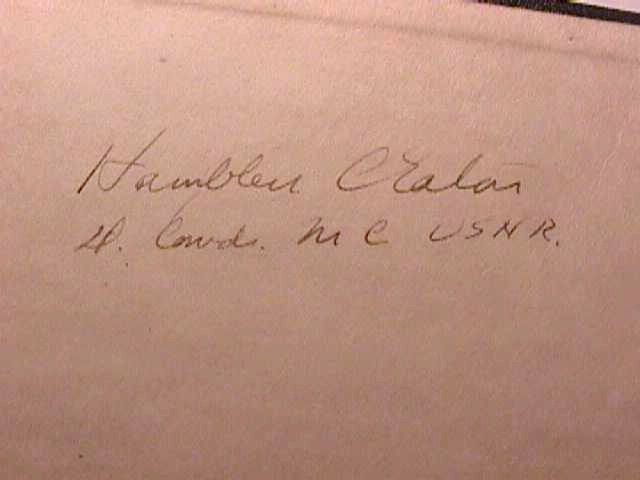 Hamblen C Eaton
Lt. Comdr. M C USNR.